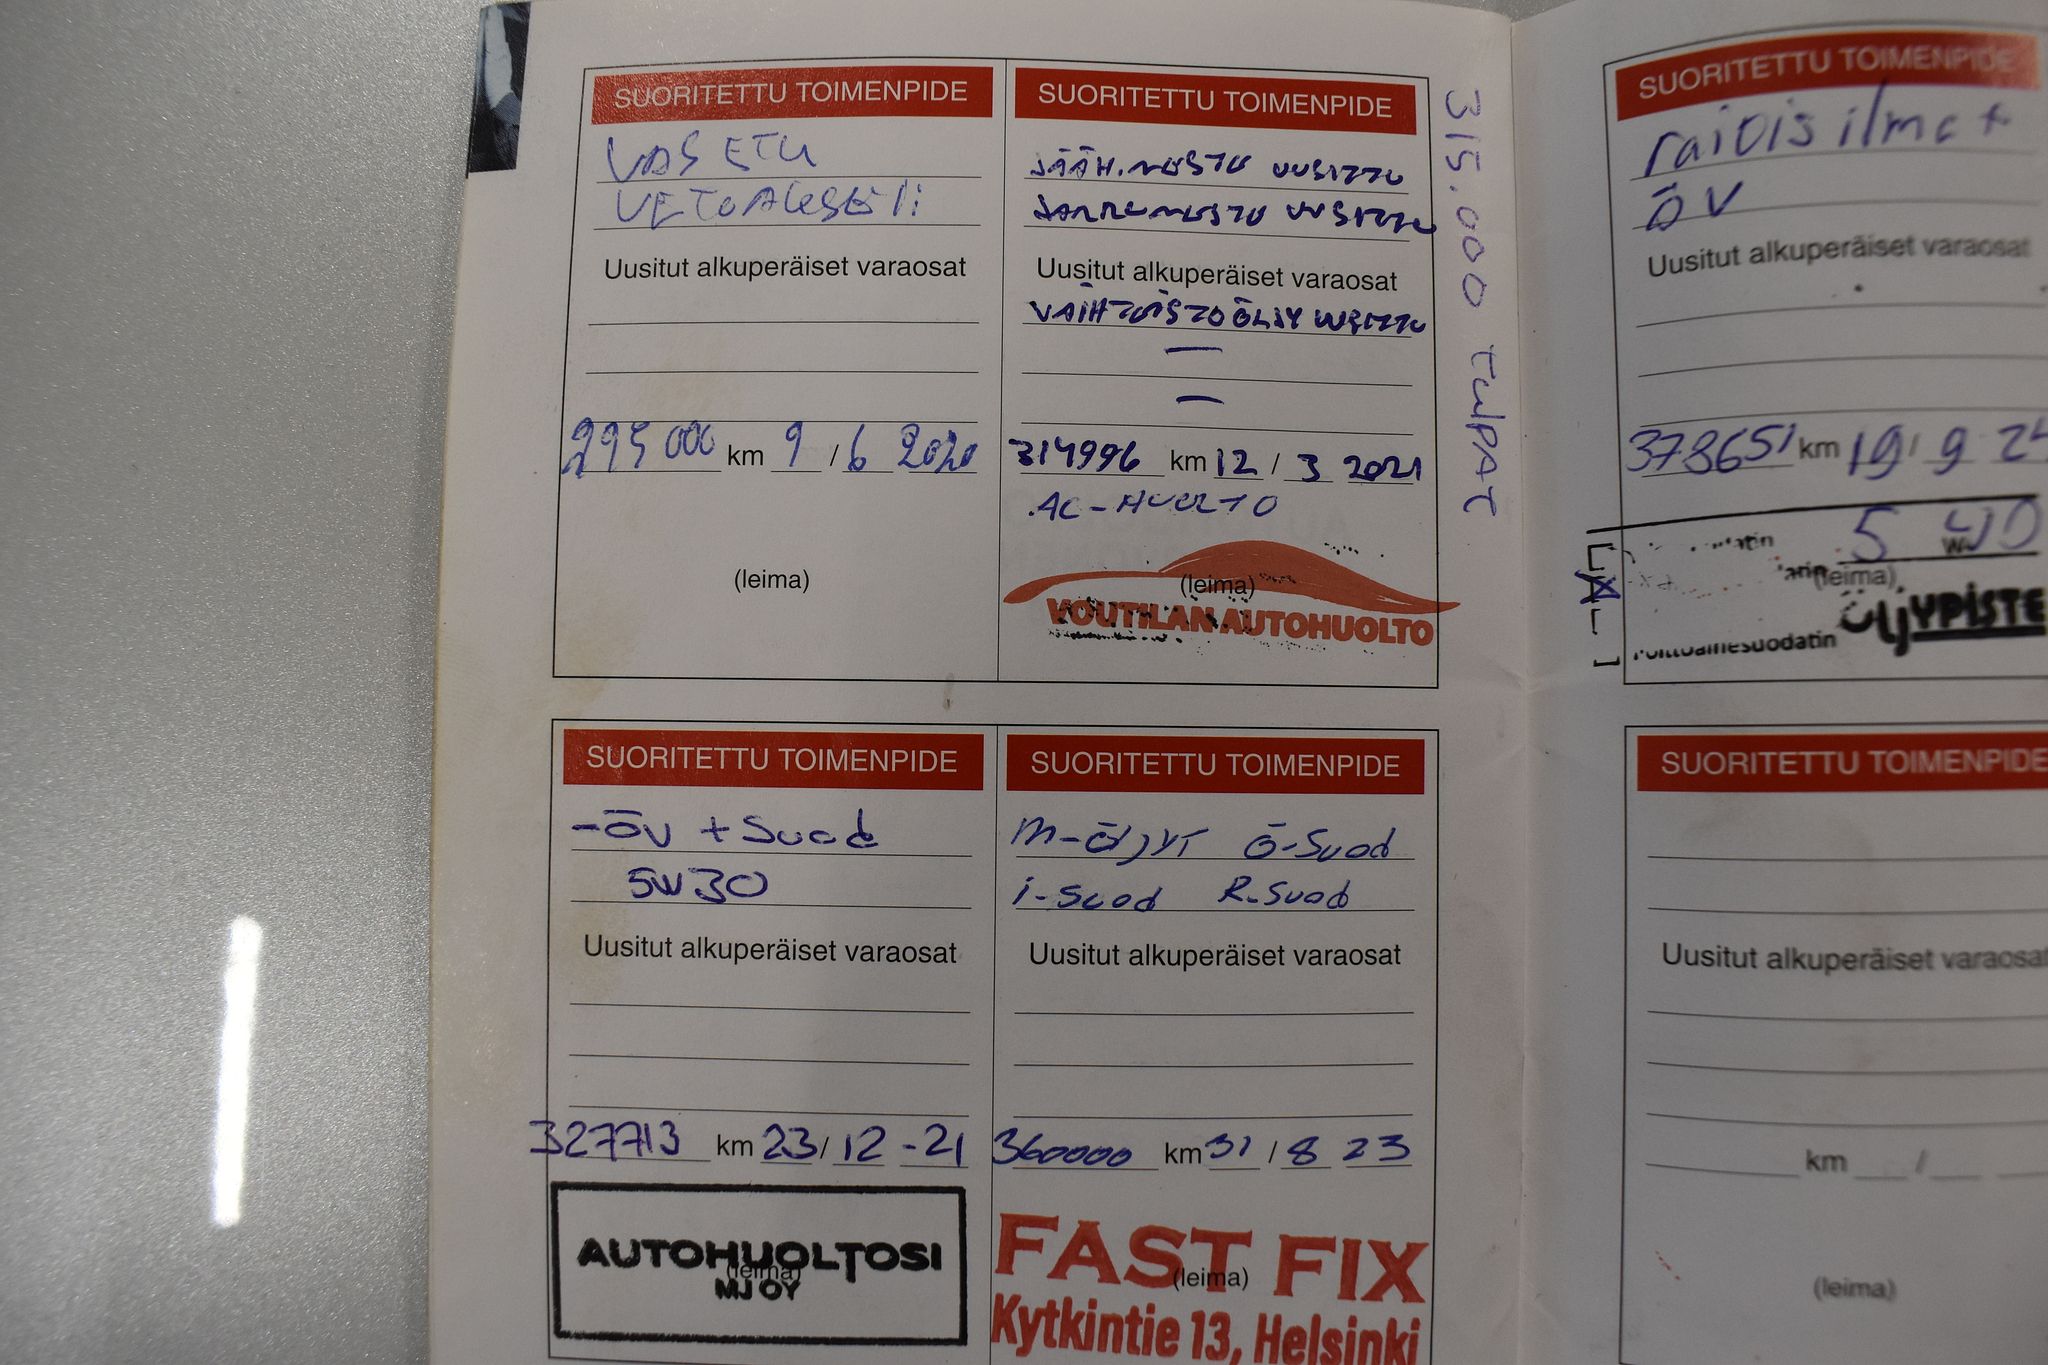 SUORITETTU TOIMENPIDE
VAS ETU
VETOAKSELI
Uusitut alkuperäiset varaosat
295 000 km 9 / 6 2020
(leima)
SUORITETTU TOIMENPIDE
JÄÄH.NESTE UUSITTU
JARRUNESTE UUSITTU
Uusitut alkuperäiset varaosat
VAIHTEISTOÖLJY UUSITTU
—
—
314996 km 12 / 3 2021
AC-HUOLTO
(leima)
VOUTILAN AUTOHUOLTO
315.000 tulPAT
SUORITETTU TOIMENPIDE
raitis ilma +
öV
Uusitut alkuperäiset varaosat
378651 km 19 / 9 24
5 W
(leima)
ÖljYPISTE
Polttoainesuodatin
SUORITETTU TOIMENPIDE
-öv + Suod
5W30
Uusitut alkuperäiset varaosat
327713 km 23 / 12 -21
AUTOHUOLTOSI
(leima)
MJ OY
SUORITETTU TOIMENPIDE
M-öljyt ö-Suod
i-Suod R-Suod
Uusitut alkuperäiset varaosat
360000 km 31 / 8 23
FAST FIX
(leima)
Kytkintie 13, Helsinki
SUORITETTU TOIMENPIDE
Uusitut alkuperäiset varaosat
km /
(leima)